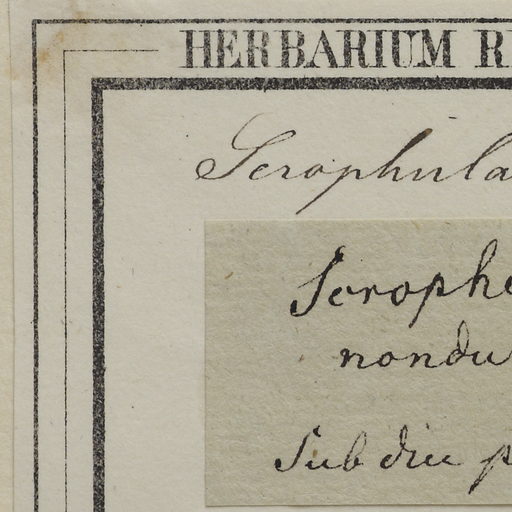 HERBARIUM R
Scrophula
Scroph
nondu
Sub diu p